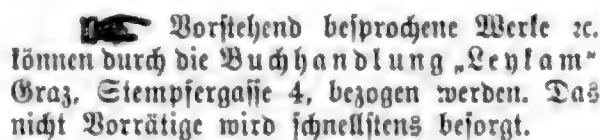 ☛ Vorstehend besprochene Werke ꝛc.
können durch die Buchhandlung „Leykam"
Graz, Stempfergasse 4, bezogen werden. Das
nicht Vorrätige wird schnellstens besorgt.